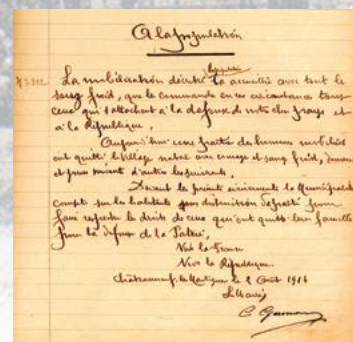 A la population
La mobilisation décrétée a été accueillie avec tout le
sang froid, que le commande en ces circonstances tous
ceux qui s'attachent à la défense de notre cher pays et
à la République.
Aujourd'hui une partie des hommes mobilisés
ont quitté le village natal avec courage et sang froid, demain
et jours suivants d'autres les suivront.
Devant les présents évènements la Municipalité
compte sur les habitants sans distinction de parti pour
faire respecter les droits de ceux qui ont quitté leur famille
pour la défense de la Patrie,
Vive la France
Vive la République.
Châteauneuf-les-Martigues le 2 Août 1914
Le Maire